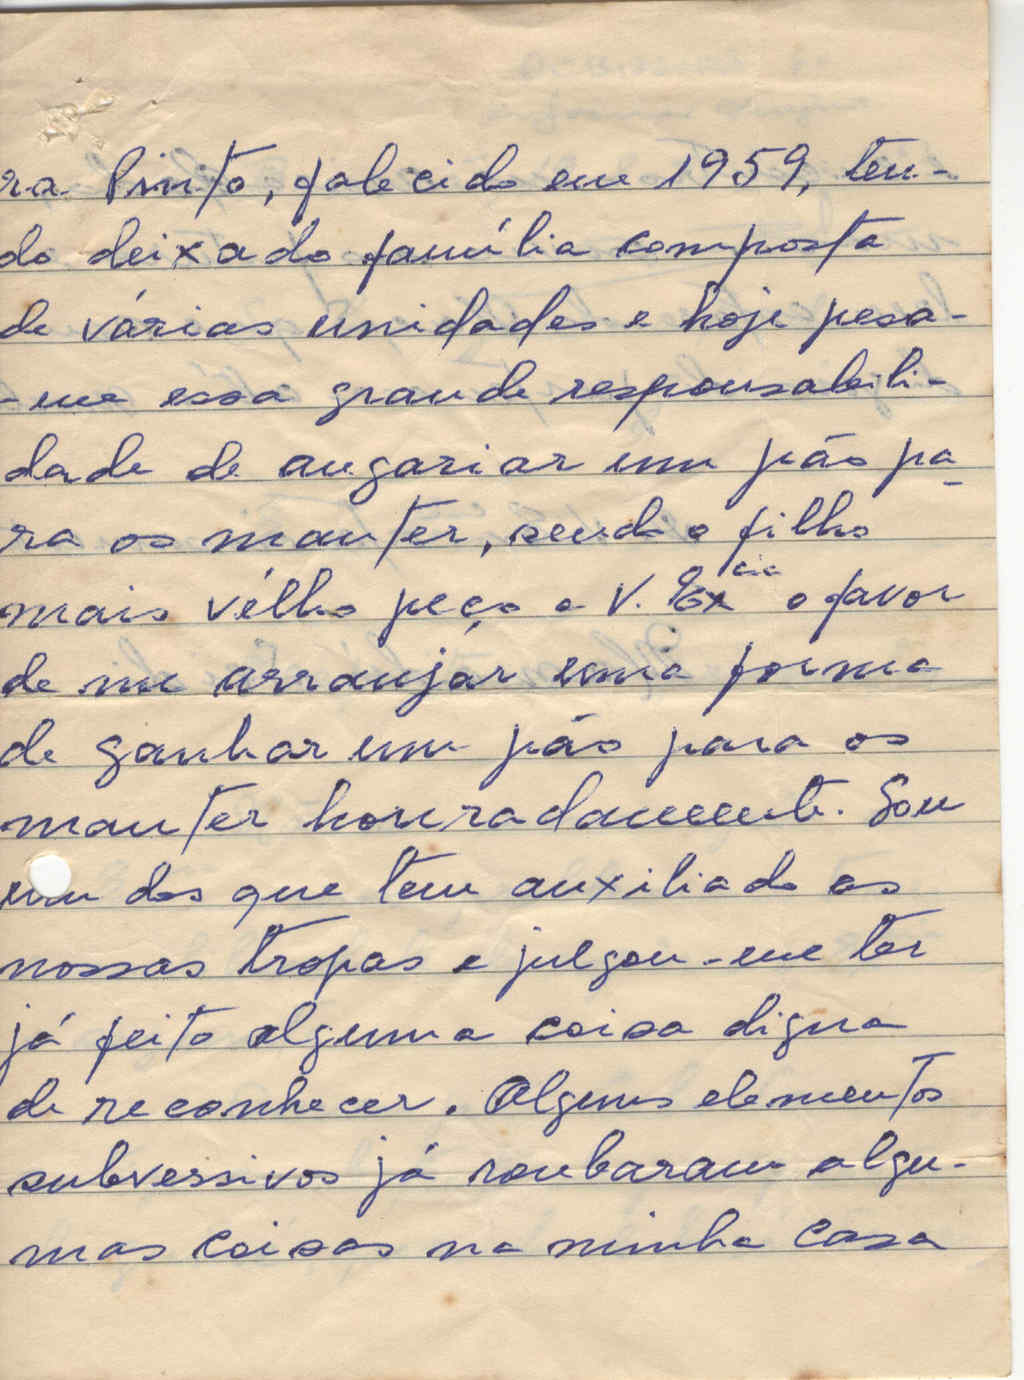 ra Pinto, falecido em 1959, ten-
do deixado família composta
de várias unidades e hoje pesa-
-me essa grande responsabili-
dade de angariar um pão pa-
ra os manter, sendo o filho
mais vélho peço a V. Excia o favor
de me arranjár uma forma
de ganhar um pão para os
manter honradamente. Sou
um dos que tem auxiliado as
nossas tropas e julgou-me ter
já feito alguma coisa digna
de reconhecer. Alguns elementos
subversivos já roubaram algu-
mas coisas na minha casa